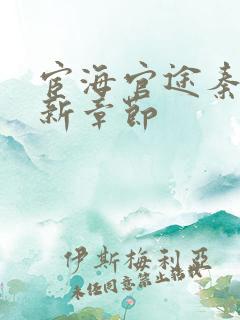 宦海官途秦
新章节
伊斯梅利亞
未经同意禁止转载